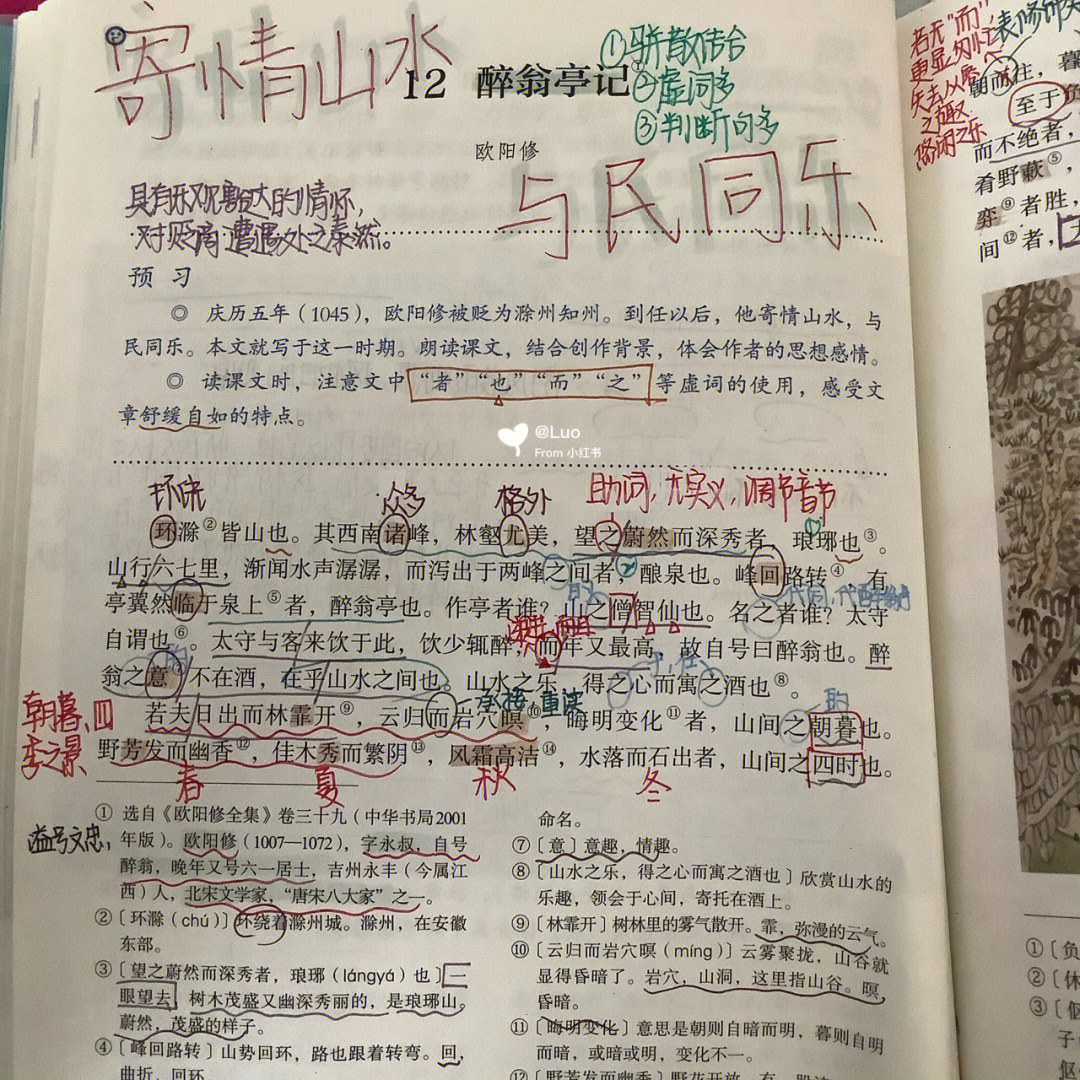 寄情山水
12 醉翁亭记①
①骈散结合
②虚词多
③判断句多
欧阳修
与民同乐
具有乐观豁达的情怀，
对贬谪遭遇处之泰然。
预 习
◎ 庆历五年（1045），欧阳修被贬为滁州知州。到任以后，他寄情山水，与
民同乐。本文就写于这一时期。朗读课文，结合创作背景，体会作者的思想感情。
◎ 读课文时，注意文中“者”“也”“而”“之”等虚词的使用，感受文
章舒缓自如的特点。
@Luo
From 小红书
环绕 众多 格外 助词，无实义，调节音节
环滁②皆山也。其西南诸峰，林壑尤美，望之蔚然而深秀者，琅琊也③。
山行六七里，渐闻水声潺潺，而泻出于两峰之间者，酿泉也。峰回路转④，有
亭翼然临于泉上⑤者，醉翁亭也。作亭者谁？山之僧智仙也。名之者谁？太守
自谓也⑥。太守与客来饮于此，饮少辄醉，而年又最高，故自号曰醉翁也。醉
翁之意⑦不在酒，在乎山水之间也。山水之乐，得之心而寓之酒也⑧。
承接 重读
的
若夫日出而林霏开⑨，云归而岩穴暝⑩，晦明变化⑪者，山间之朝暮也。
野芳发而幽香⑫，佳木秀而繁阴⑬，风霜高洁⑭，水落而石出者，山间之四时也。
朝暮、四
季之景
春 夏 秋 冬
谥号文忠，
① 选自《欧阳修全集》卷三十九（中华书局2001
年版）。欧阳修（1007—1072），字永叔，自号
醉翁，晚年又号六一居士，吉州永丰（今属江
西）人，北宋文学家，“唐宋八大家”之一。
②〔环滁（chú）〕环绕着滁州城。滁州，在安徽
东部。
③〔望之蔚然而深秀者，琅琊（lángyá）也〕一
眼望去，树木茂盛又幽深秀丽的，是琅琊山。
蔚然，茂盛的样子。
④〔峰回路转〕山势回环，路也跟着转弯。回，
曲折、回环。
命名。
⑦〔意〕意趣，情趣。
⑧〔山水之乐，得之心而寓之酒也〕欣赏山水的
乐趣，领会于心间，寄托在酒上。
⑨〔林霏开〕树林里的雾气散开。霏，弥漫的云气。
⑩〔云归而岩穴暝（míng）〕云雾聚拢，山谷就
显得昏暗了。岩穴，山洞，这里指山谷。暝，
昏暗。
⑪〔晦明变化〕意思是朝则自暗而明，暮则自明
而暗，或暗或明，变化不一。
若无“而”
更显匆忙
失去从容
之趣
悠闲之乐
朝而往，暮
至于负
而不绝者，
肴野蔌⑤，
弈⑨者胜，
间⑫者，
①〔负
②〔休
③〔伛
子
伛